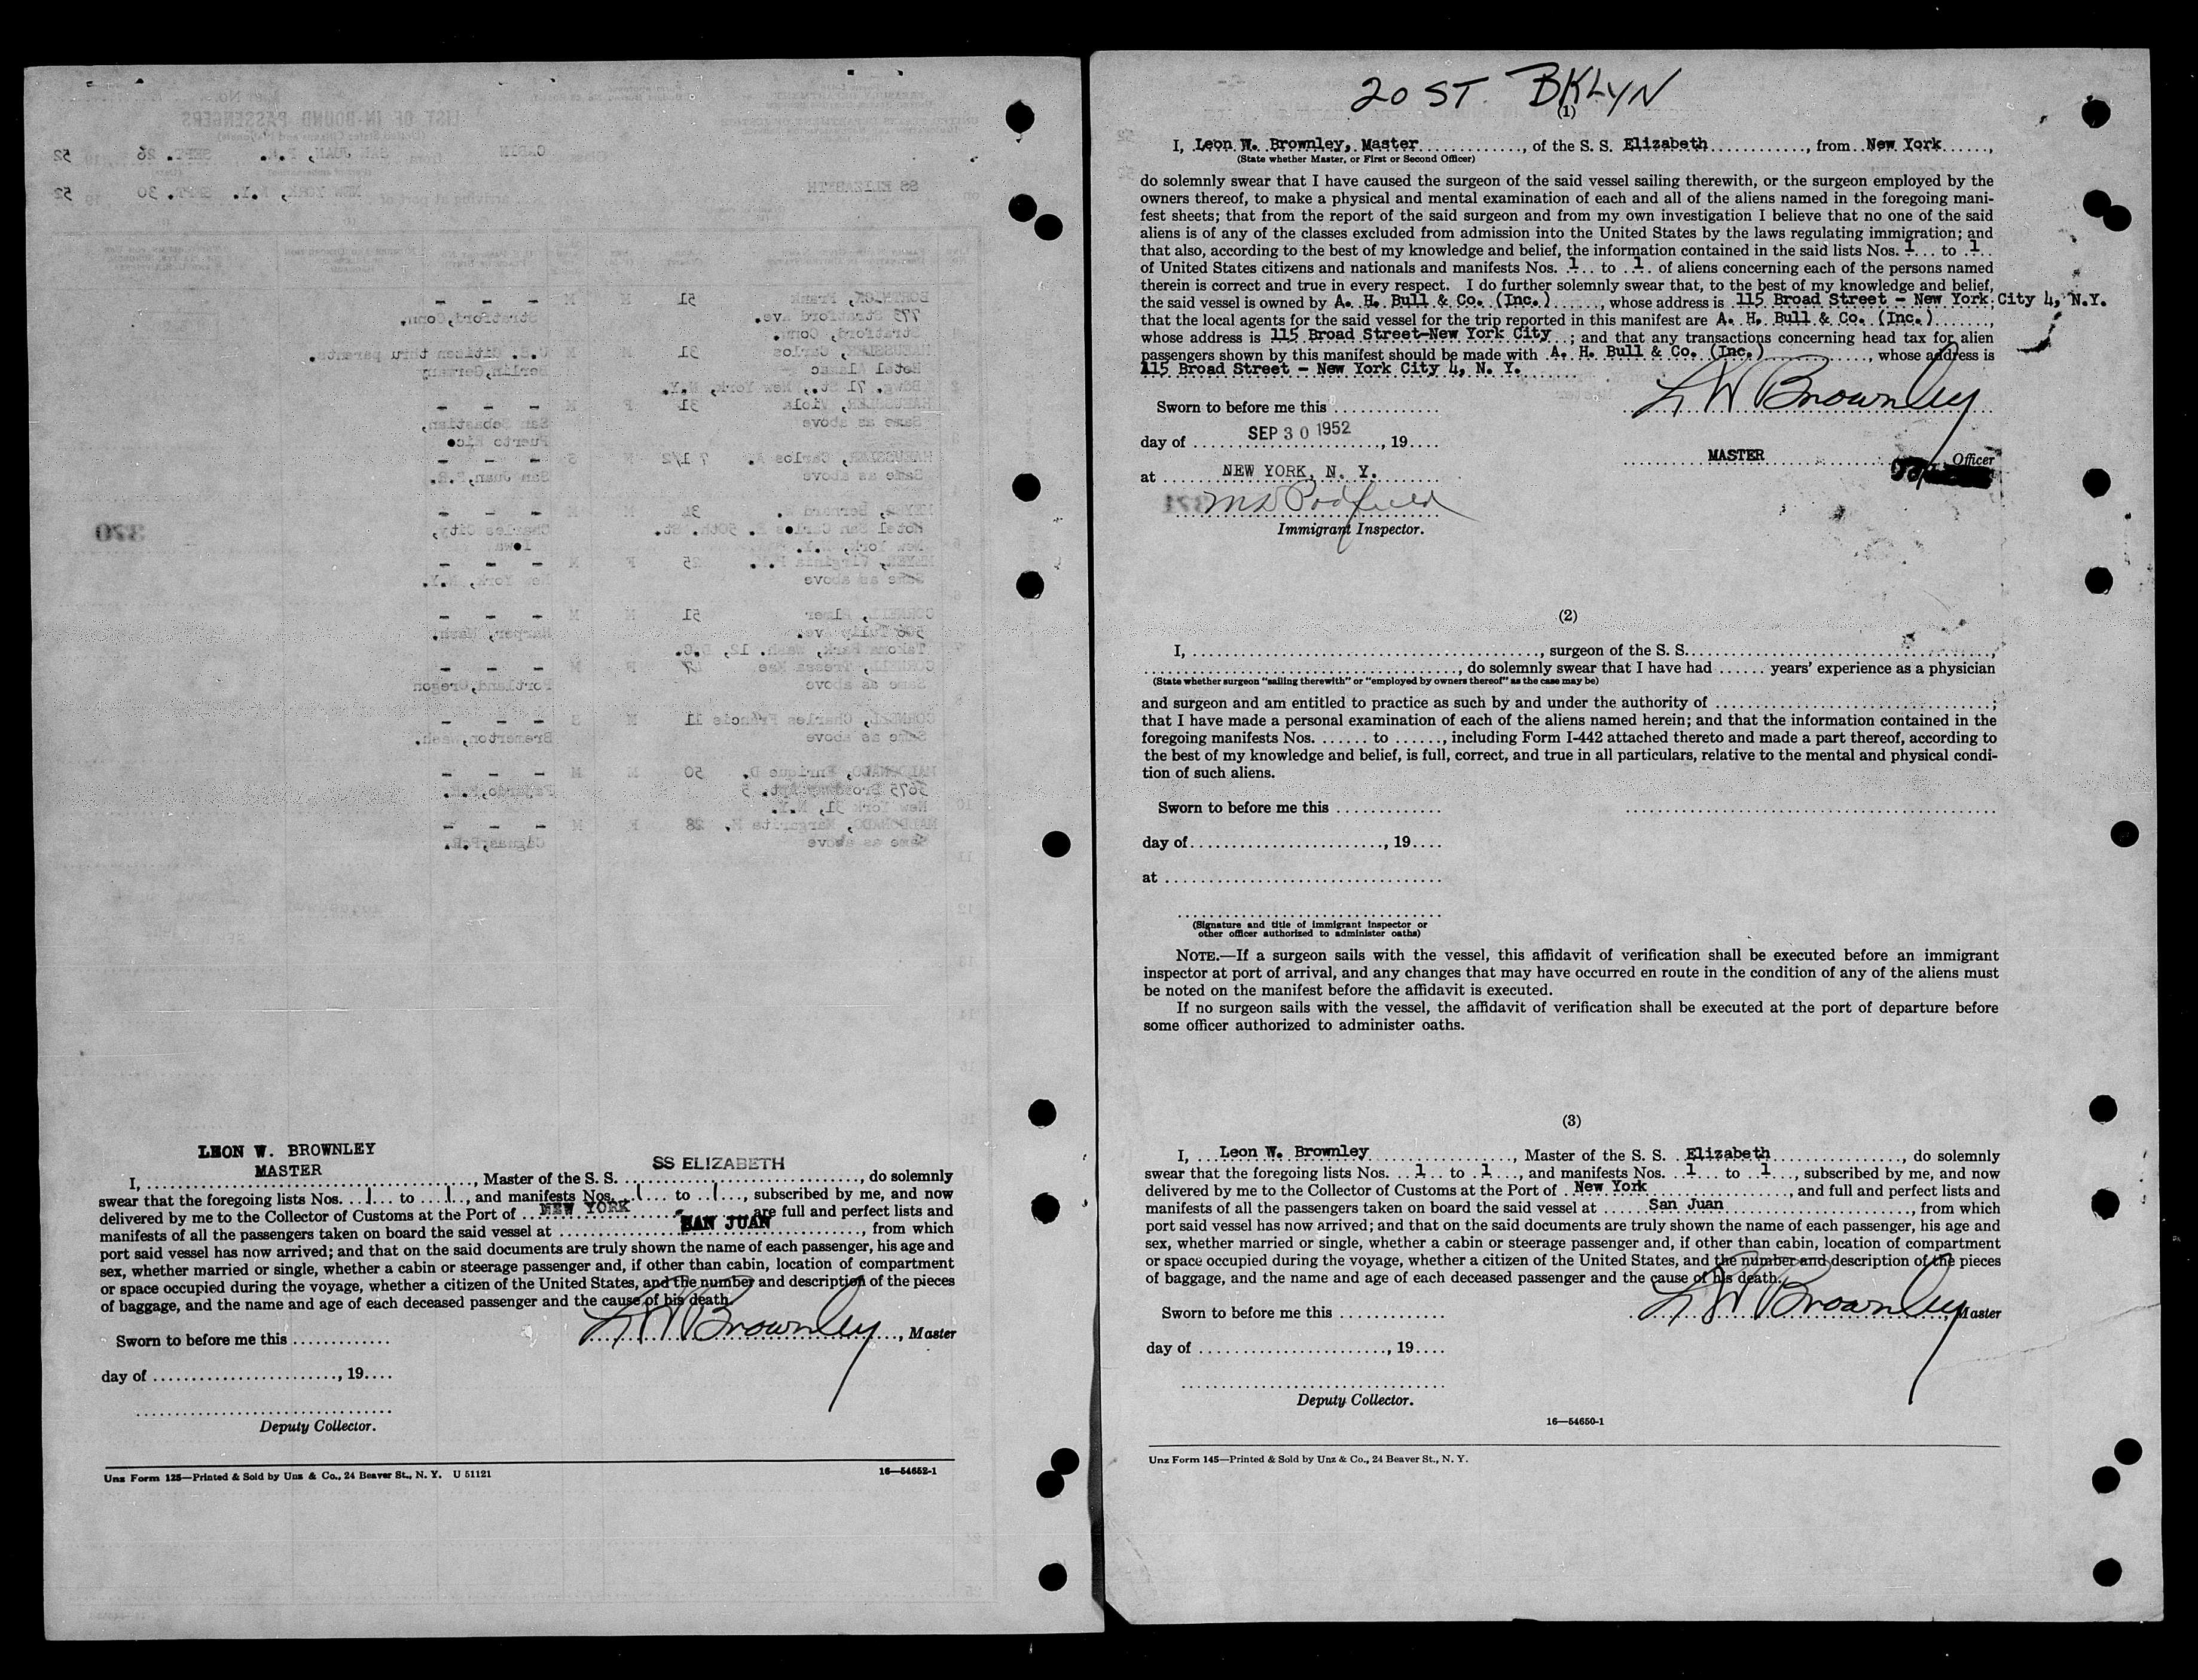 LIST OF IN-BOUND PASSENGERS
(United States Citizens and Nationals)
CABIN from SAN JUAN, P.R. SEPT. 26 52
SS ELIZABETH arriving at port of NEW YORK, N.Y. SEPT. 30 52
BORTNICK, Frank 51 M M - - -
775 Stratford Ave. Stratford,Conn.
Stratford, Conn.
HAEUSSLER, Carlos 31 M M U.S. Citizen thru parents.
Hotel Alamac Berlin,Germany
Bdwg. 71 St., New York, N.Y.
HAEUSSLER, Viola 31 F M - - -
Same as above San Sebastian,
Puerto Rico
HAEUSSLER, Carlos A. 7 1/2 M S - - -
Same as above San Juan,P.R.
MEYER, Bernard W. 34 M M - - -
Hotel San Carlos E. 50th. St. Charles City,
New York, N.Y. Iowa
MEYER, Virginia 25 F M - - -
Same as above New York, N.Y.
370
CORNELL, Elmer 51 M M - - -
Tully Ave. Harper, Wash.
Takoma Park, Wash. 12, D.C.
CORNELL, Tressa Mae 47 F M - - -
Same as above Portland,Oregon
CORNELL, Charles Francis 11 M S - - -
Same as above Bremerton,Wash.
MALDONADO, Enrique D. 50 M M - - -
3675 Broadway Apt. 5 Fajardo,P.R.
New York 31, N.Y.
MALDONADO, Margarita M. 28 F M - - -
Same as above Caguas,P.R.
LEON W. BROWNLEY
MASTER SS ELIZABETH
I, ............, Master of the S. S. ............, do solemnly
swear that the foregoing lists Nos. 1 to 1, and manifests Nos. 1 to 1, subscribed by me, and now
delivered by me to the Collector of Customs at the Port of NEW YORK are full and perfect lists and
manifests of all the passengers taken on board the said vessel at SAN JUAN, from which
port said vessel has now arrived; and that on the said documents are truly shown the name of each passenger, his age and
sex, whether married or single, whether a cabin or steerage passenger and, if other than cabin, location of compartment
or space occupied during the voyage, whether a citizen of the United States, and the number and description of the pieces
of baggage, and the name and age of each deceased passenger and the cause of his death.
L W Brownley, Master
Sworn to before me this ............
day of ............, 19....
Deputy Collector.
Unz Form 125—Printed & Sold by Unz & Co., 24 Beaver St., N. Y. U 51121 16—54652-1
20 ST. BKLYN
(1)
I, Leon W. Brownley, Master, of the S. S. Elizabeth, from New York,
(State whether Master, or First or Second Officer)
do solemnly swear that I have caused the surgeon of the said vessel sailing therewith, or the surgeon employed by the
owners thereof, to make a physical and mental examination of each and all of the aliens named in the foregoing mani-
fest sheets; that from the report of the said surgeon and from my own investigation I believe that no one of the said
aliens is of any of the classes excluded from admission into the United States by the laws regulating immigration; and
that also, according to the best of my knowledge and belief, the information contained in the said lists Nos. 1 to 1
of United States citizens and nationals and manifests Nos. 1 to 1 of aliens concerning each of the persons named
therein is correct and true in every respect. I do further solemnly swear that, to the best of my knowledge and belief,
the said vessel is owned by A. H. Bull & Co. (Inc.), whose address is 115 Broad Street - New York City 4, N.Y.
that the local agents for the said vessel for the trip reported in this manifest are A. H. Bull & Co. (Inc.),
whose address is 115 Broad Street-New York City; and that any transactions concerning head tax for alien
passengers shown by this manifest should be made with A. H. Bull & Co. (Inc.), whose address is
115 Broad Street - New York City 4, N. Y.
L W Brownley
Sworn to before me this ............
day of SEP 30 1952, 19....
MASTER Officer
at NEW YORK, N. Y.
371
Immigrant Inspector.
(2)
I, ............, surgeon of the S. S. ............,
............, do solemnly swear that I have had ...... years' experience as a physician
(State whether surgeon "sailing therewith" or "employed by owners thereof" as the case may be)
and surgeon and am entitled to practice as such by and under the authority of ............;
that I have made a personal examination of each of the aliens named herein; and that the information contained in the
foregoing manifests Nos. ...... to ......, including Form I-442 attached thereto and made a part thereof, according to
the best of my knowledge and belief, is full, correct, and true in all particulars, relative to the mental and physical condi-
tion of such aliens.
Sworn to before me this ............
day of ............, 19....
at ............
(Signature and title of immigrant inspector or
other officer authorized to administer oaths)
NOTE.—If a surgeon sails with the vessel, this affidavit of verification shall be executed before an immigrant
inspector at port of arrival, and any changes that may have occurred en route in the condition of any of the aliens must
be noted on the manifest before the affidavit is executed.
If no surgeon sails with the vessel, the affidavit of verification shall be executed at the port of departure before
some officer authorized to administer oaths.
(3)
I, Leon W. Brownley, Master of the S. S. Elizabeth, do solemnly
swear that the foregoing lists Nos. 1 to 1, and manifests Nos. 1 to 1, subscribed by me, and now
delivered by me to the Collector of Customs at the Port of New York, and full and perfect lists and
manifests of all the passengers taken on board the said vessel at San Juan, from which
port said vessel has now arrived; and that on the said documents are truly shown the name of each passenger, his age and
sex, whether married or single, whether a cabin or steerage passenger and, if other than cabin, location of compartment
or space occupied during the voyage, whether a citizen of the United States, and the number and description of the pieces
of baggage, and the name and age of each deceased passenger and the cause of his death.
L W Brownley, Master
Sworn to before me this ............
day of ............, 19....
Deputy Collector.
16—54650-1
Unz Form 145—Printed & Sold by Unz & Co., 24 Beaver St., N. Y.